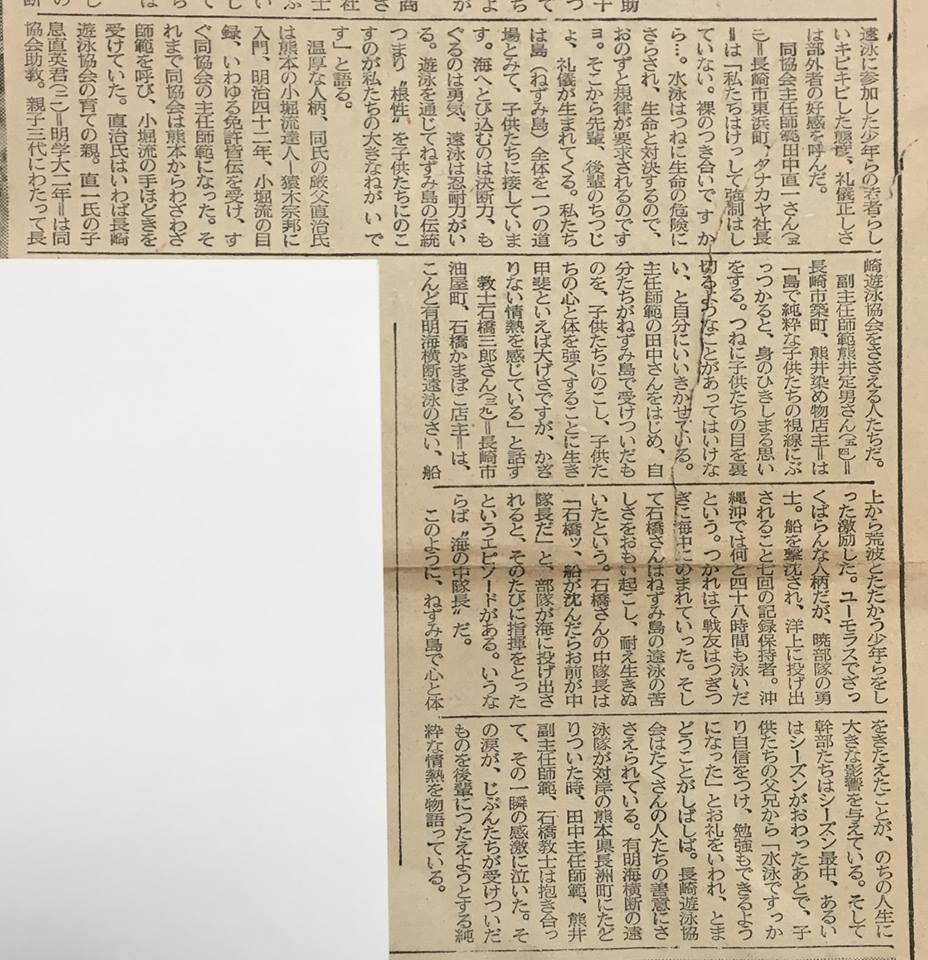 遠泳に参加した少年らの若者らし
いキビキビした態度、礼儀正しさ
は部外者の好感を呼んだ。
同協会主任師範田中直一さん(五
二)=長崎市東浜町、タナカヤ社長
=は「私たちはけっして強制はし
ていない。裸のつき合いです か
ら…。水泳はつねに生命の危険に
さらされ、生命と対決するので、
おのずと規律が要求されるのです
ヨ。そこから先輩、後輩のちつじ
ょ、礼儀が生まれてくる。私たち
は島(ねずみ島)全体を一つの道
場とみて、子供たちに接していま
す。海へとび込むのは決断力、も
ぐるのは勇気、遠泳は忍耐力がい
る。遊泳を通じてねずみ島の伝統
つまり〝根性〟を子供たちにのこ
すのが私たちの大きなねが いで
す」と語る。
温厚な人柄、同氏の厳父直治氏
は熊本の小堀流達人―猿木宗那に
入門、明治四十二年、小堀流の目
録、いわゆる免許皆伝を受け、す
ぐ同協会の主任師範になった。そ
れまで同協会は熊本からわざわざ
師範を呼び、小堀流の手ほどきを
受けていた。直治氏はいわば長崎
遊泳協会の育ての親。直一氏の子
息直英君(二一)=明学大二年=は同
協会助教。親子三代にわたって長
崎遊泳協会をささえる人たちだ。
副主任師範熊井定男さん(五四)=
長崎市築町、熊井染め物店主=は
「島で純粋な子供たちの視線にぶ
っつかると、身のひきしまる思い
をする。つねに子供たちの目を裏
切るようなことがあってはいけな
い、と自分にいいきかせている。
主任師範の田中さんをはじめ、自
分たちがねずみ島で受けついだも
のを、子供たちにのこし、子供た
ちの心と体を強くすることに生き
甲斐といえば大げさですが、かぎ
りない情熱を感じている」と話す
教士石橋三郎さん(三九)=長崎市
油屋町、石橋かまぼこ店主=は、
こんど有明海横断遠泳のさい、船
上から荒波とたたかう少年らをし
った激励した。ユーモラスでざっ
くばらんな人柄だが、暁部隊の勇
士。船を撃沈され、洋上に投げ出
されること七回の記録保持者。沖
縄沖では何と四十八時間も泳いだ
という。つかれはて戦友はつぎつ
ぎに海中にのまれていった。そし
て石橋さんはねずみ島の遠泳の苦
しさをおもい起こし、耐え生きぬ
いたという。石橋さんの中隊長は
「石橋ッ、船が沈んだらお前が中
隊長だ」と、部隊が海に投げ出さ
れると、そのたびに指揮をとった
というエピソードがある。いうな
らば〝海の中隊長〟だ。
このように、ねずみ島で心と体
をきたえたことが、のちの人生に
大きな影響を与えている。そして
幹部たちはシーズン最中、あるい
はシーズンがおわったあとで、子
供たちの父兄から「水泳ですっか
り自信をつけ、勉強もできるよう
になった」とお礼をいわれ、とま
どうことがしばしば。長崎遊泳協
会はたくさんの人たちの善意にさ
さえられている。有明海横断の遠
泳隊が対岸の熊本県長洲町にたど
りついた時、田中主任師範、熊井
副主任師範、石橋教士は抱き合っ
て、その一瞬の感激に泣いた。そ
の涙が、じぶんたちが受けついだ
ものを後輩につたえようとする純
粋な情熱を物語っている。